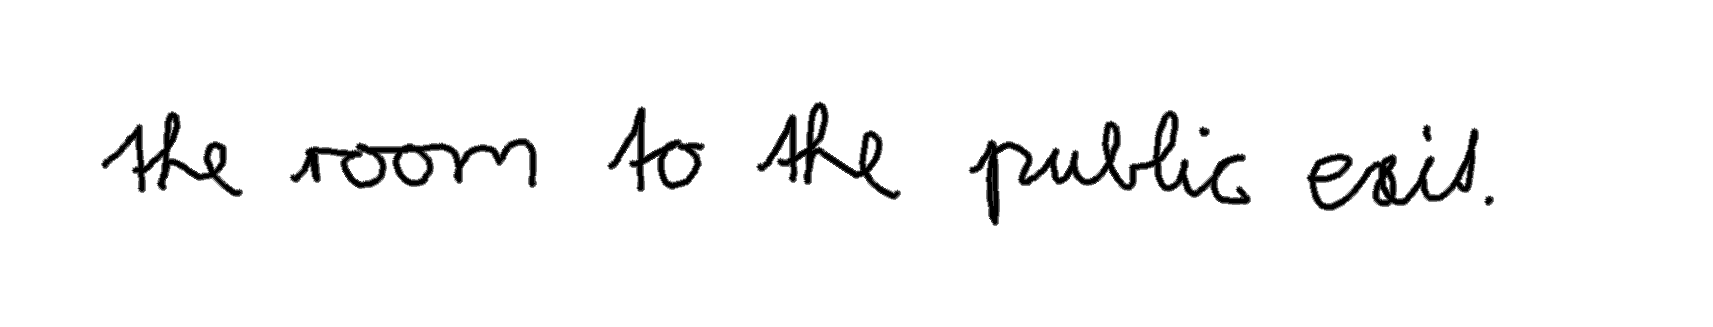 the room to the public exit.